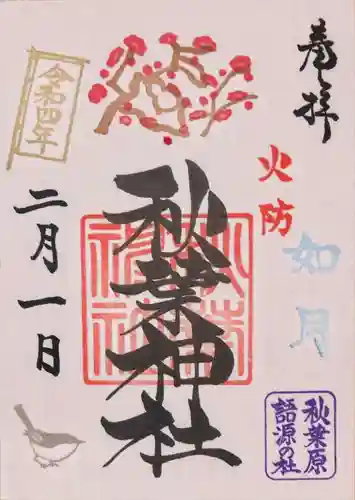 奉拝
火防
如月
秋葉神社
秋葉神社
令和四年
二月一日
秋葉原
語源の社